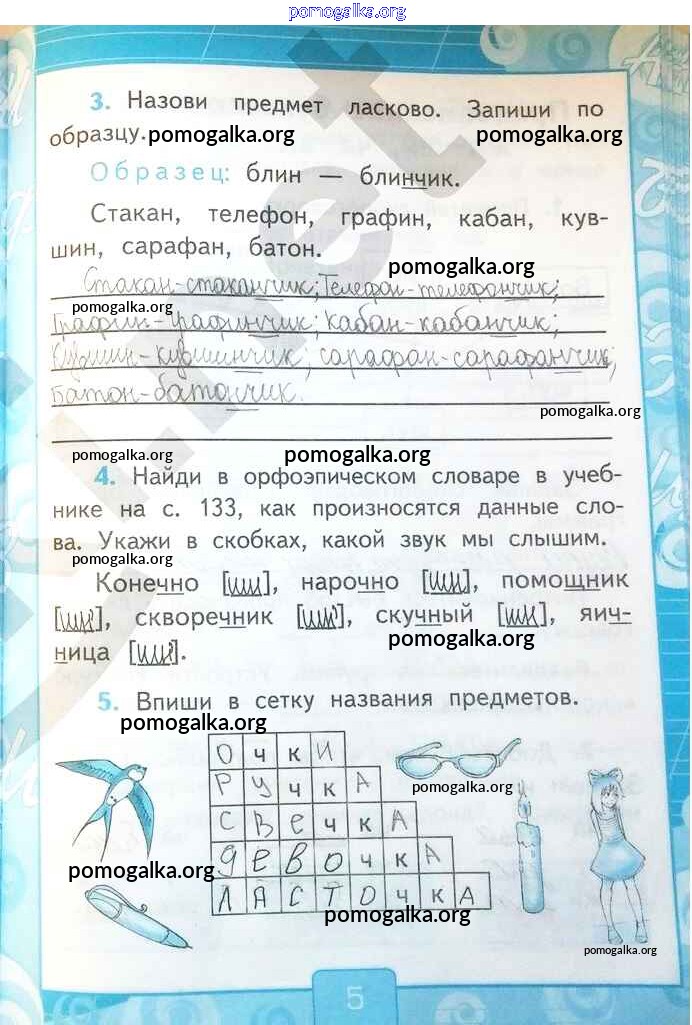 pomogalka.org
3. Назови предмет ласково. Запиши по
образцу. pomogalka.org pomogalka.org
Образец: блин — блинчик.
Стакан, телефон, графин, кабан, кув-
шин, сарафан, батон.
pomogalka.org
Стакан-стаканчик; Телефон-телефончик;
pomogalka.org
Графин-графинчик; кабан-кабанчик;
Кувшин-кувшинчик; сарафан-сарафанчик;
Батон-батончик.
pomogalka.org
pomogalka.org pomogalka.org
4. Найди в орфоэпическом словаре в учеб-
нике на с. 133, как произносятся данные сло-
ва. Укажи в скобках, какой звук мы слышим.
pomogalka.org
Конечно [шн], нарочно [шн], помощник
[шн], скворечник [шн], скучный [шн], яич-
pomogalka.org
ница [шн].
5. Впиши в сетку названия предметов.
pomogalka.org
очки
ручка
pomogalka.org
свечка
девочка
pomogalka.org
ласточка
pomogalka.org
pomogalka.org
5